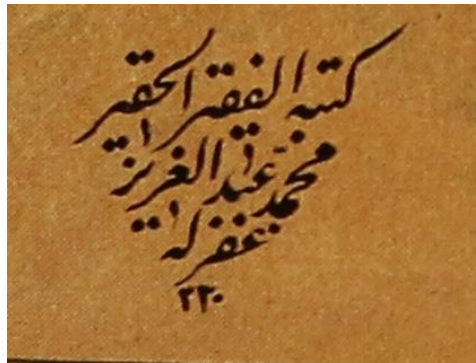 كتبه الفقير الحقير
محمد عبد العزيز
غفر له
٣٣٠